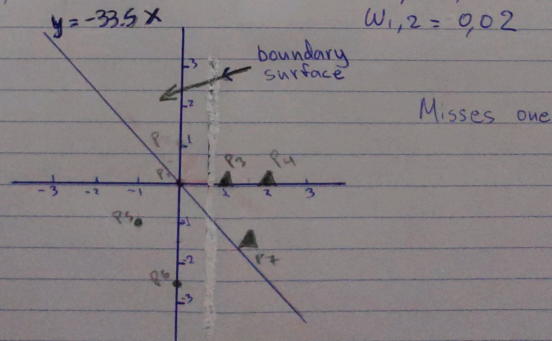 y = -33.5 x
W1,2 = 0,02
boundary
surface
Misses one
3
2
1
P
P3
P4
-3
-2
-1
1
2
3
P5
-1
P7
-2
P6
-3